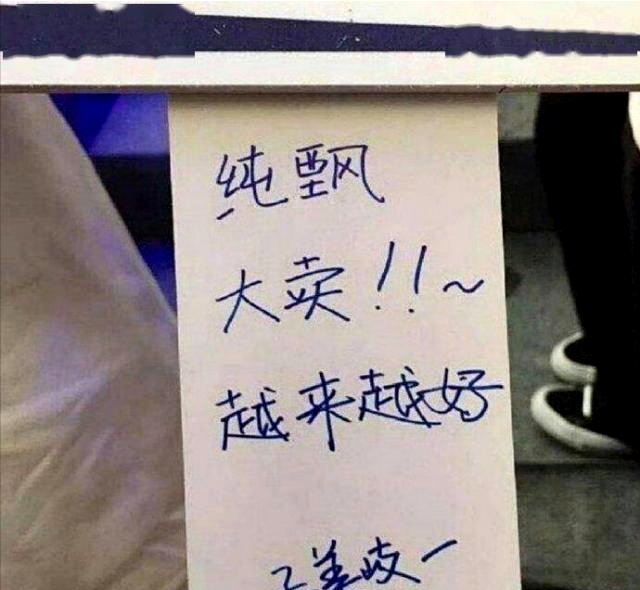 纯飘
大卖!!~
越来越好
美岐